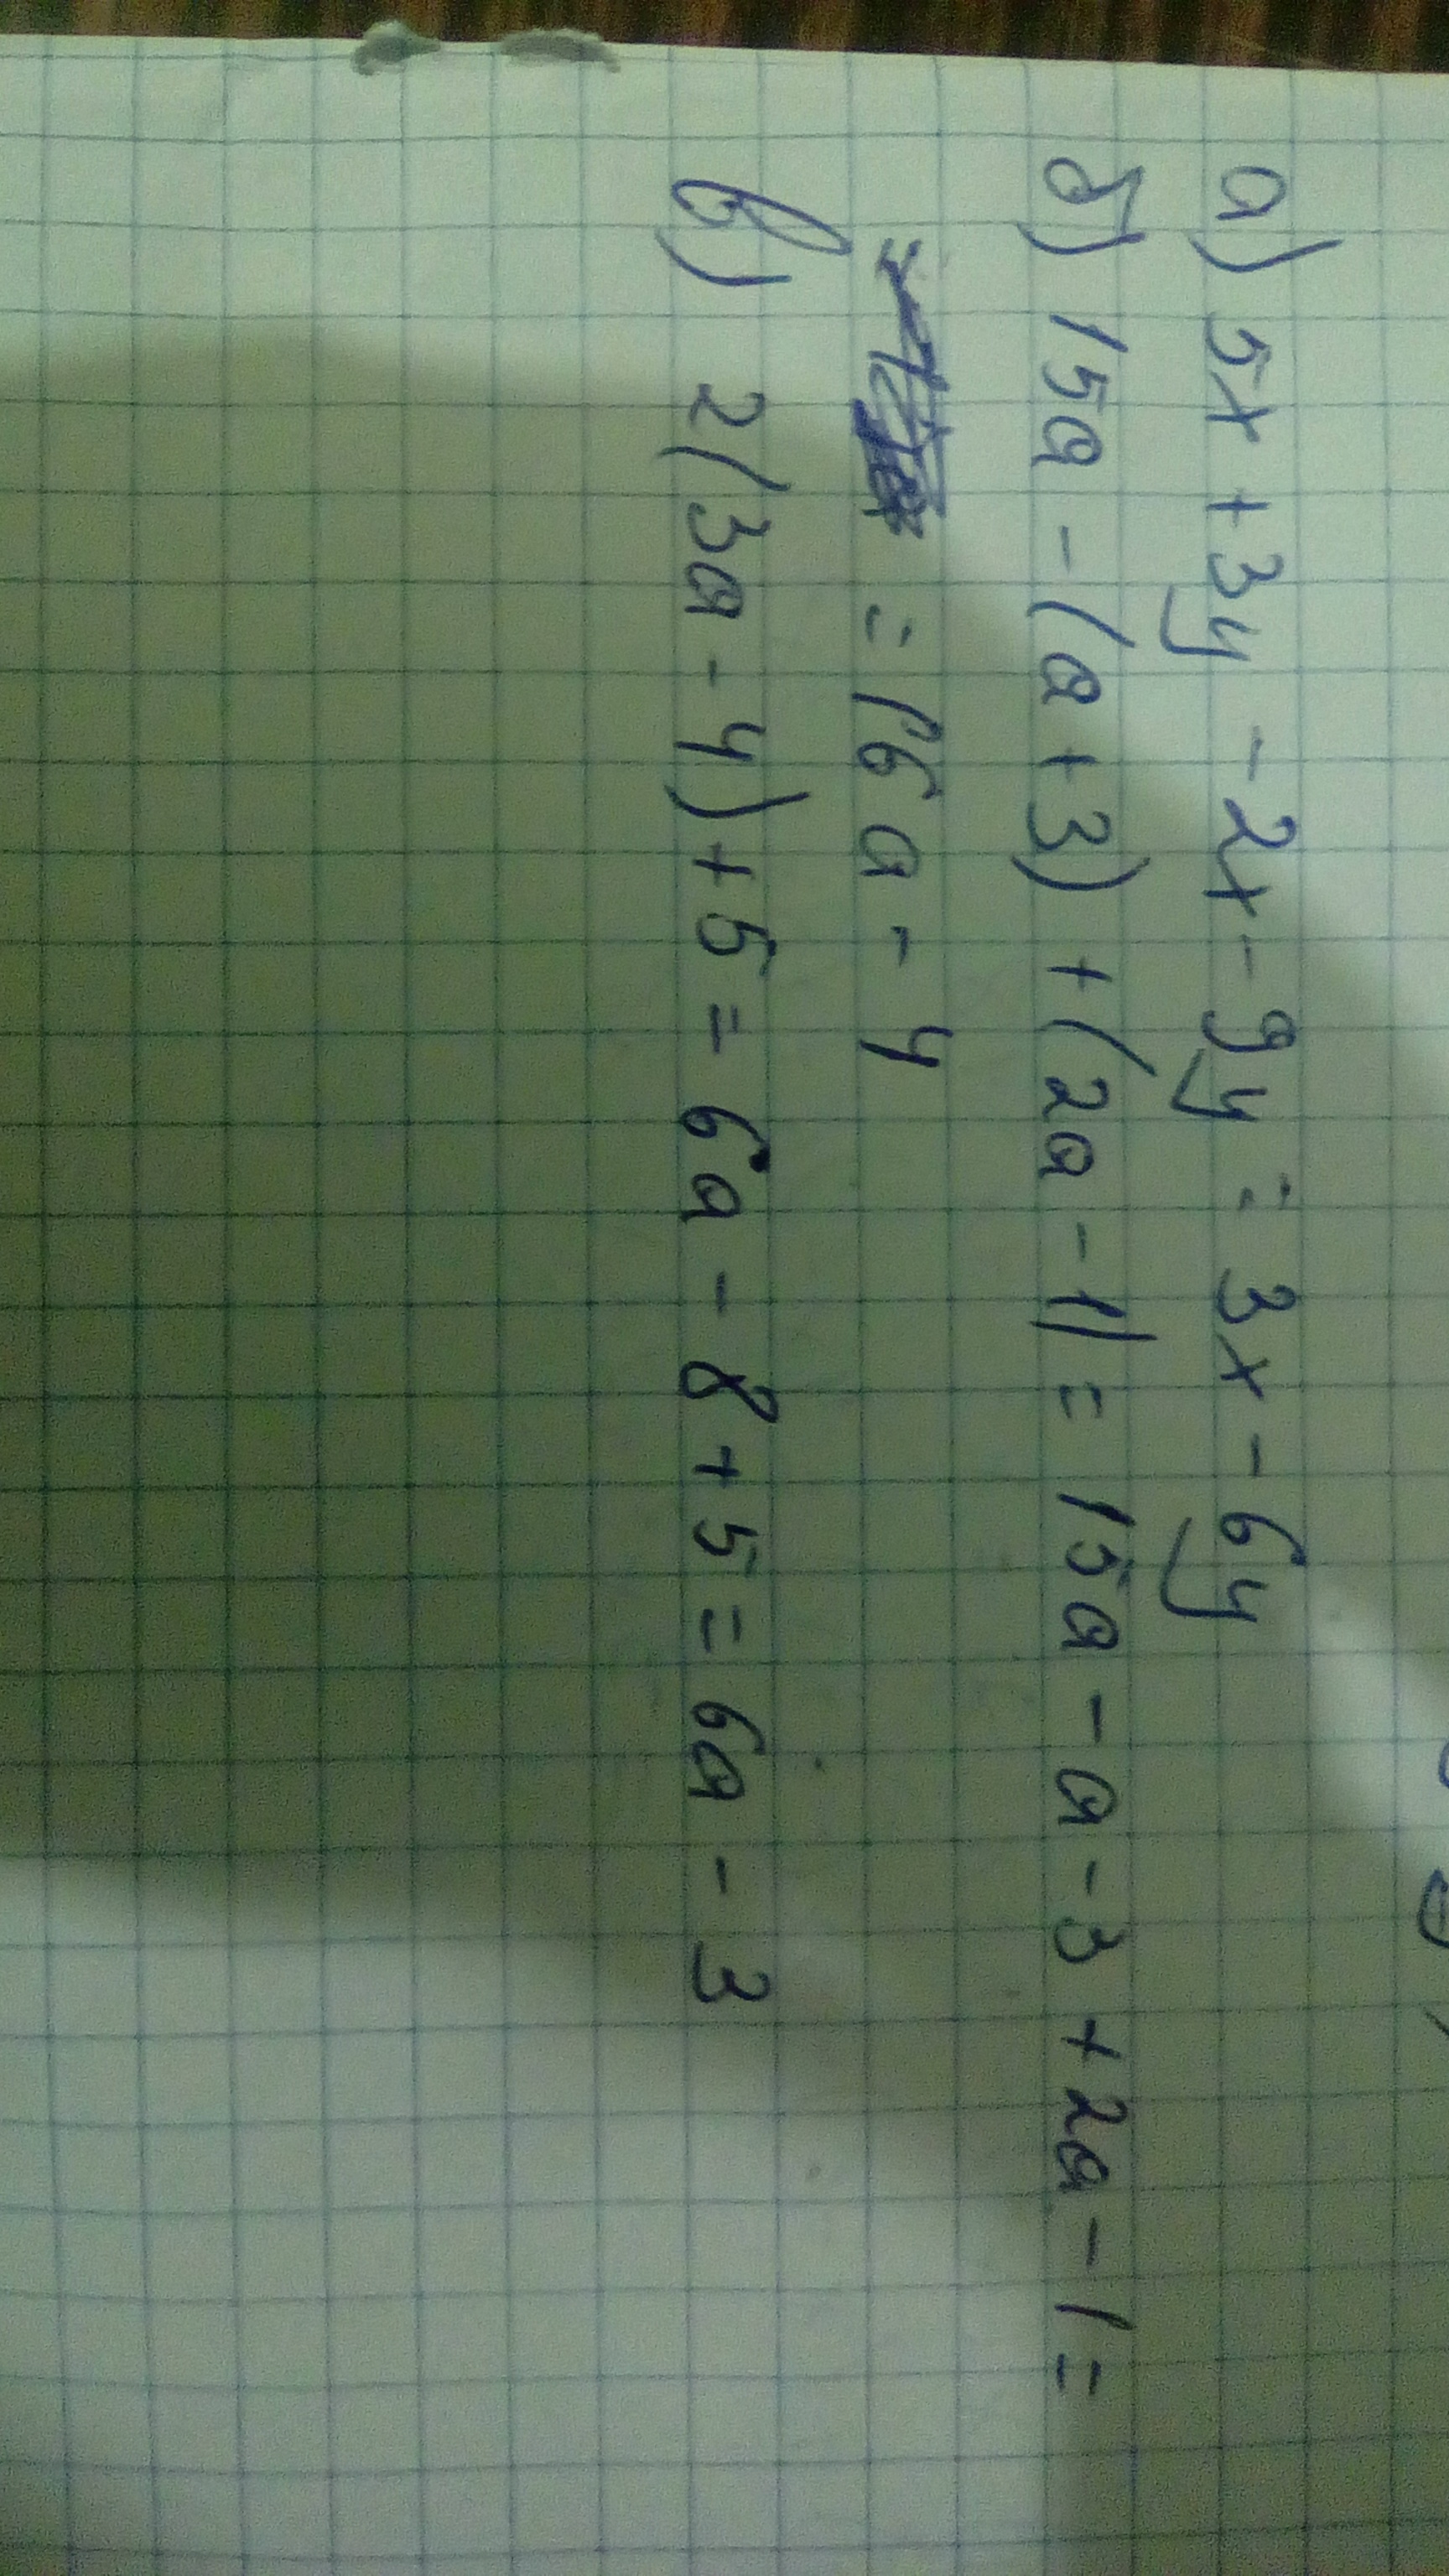 а) 5x + 3y - 2x - 9y = 3x - 6y
б) 15a - (a + 3) + (2a - 1) = 15a - a - 3 + 2a - 1 =
= 16a - 4
в) 2(3a - 4) + 5 = 6a - 8 + 5 = 6a - 3